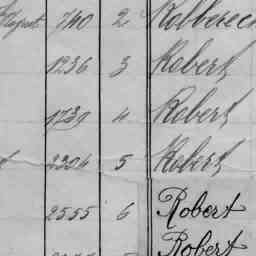 740 2
1236 3 Robert
1739 4 Robert
2304 5 Robert
2555 6 Robert
Robert